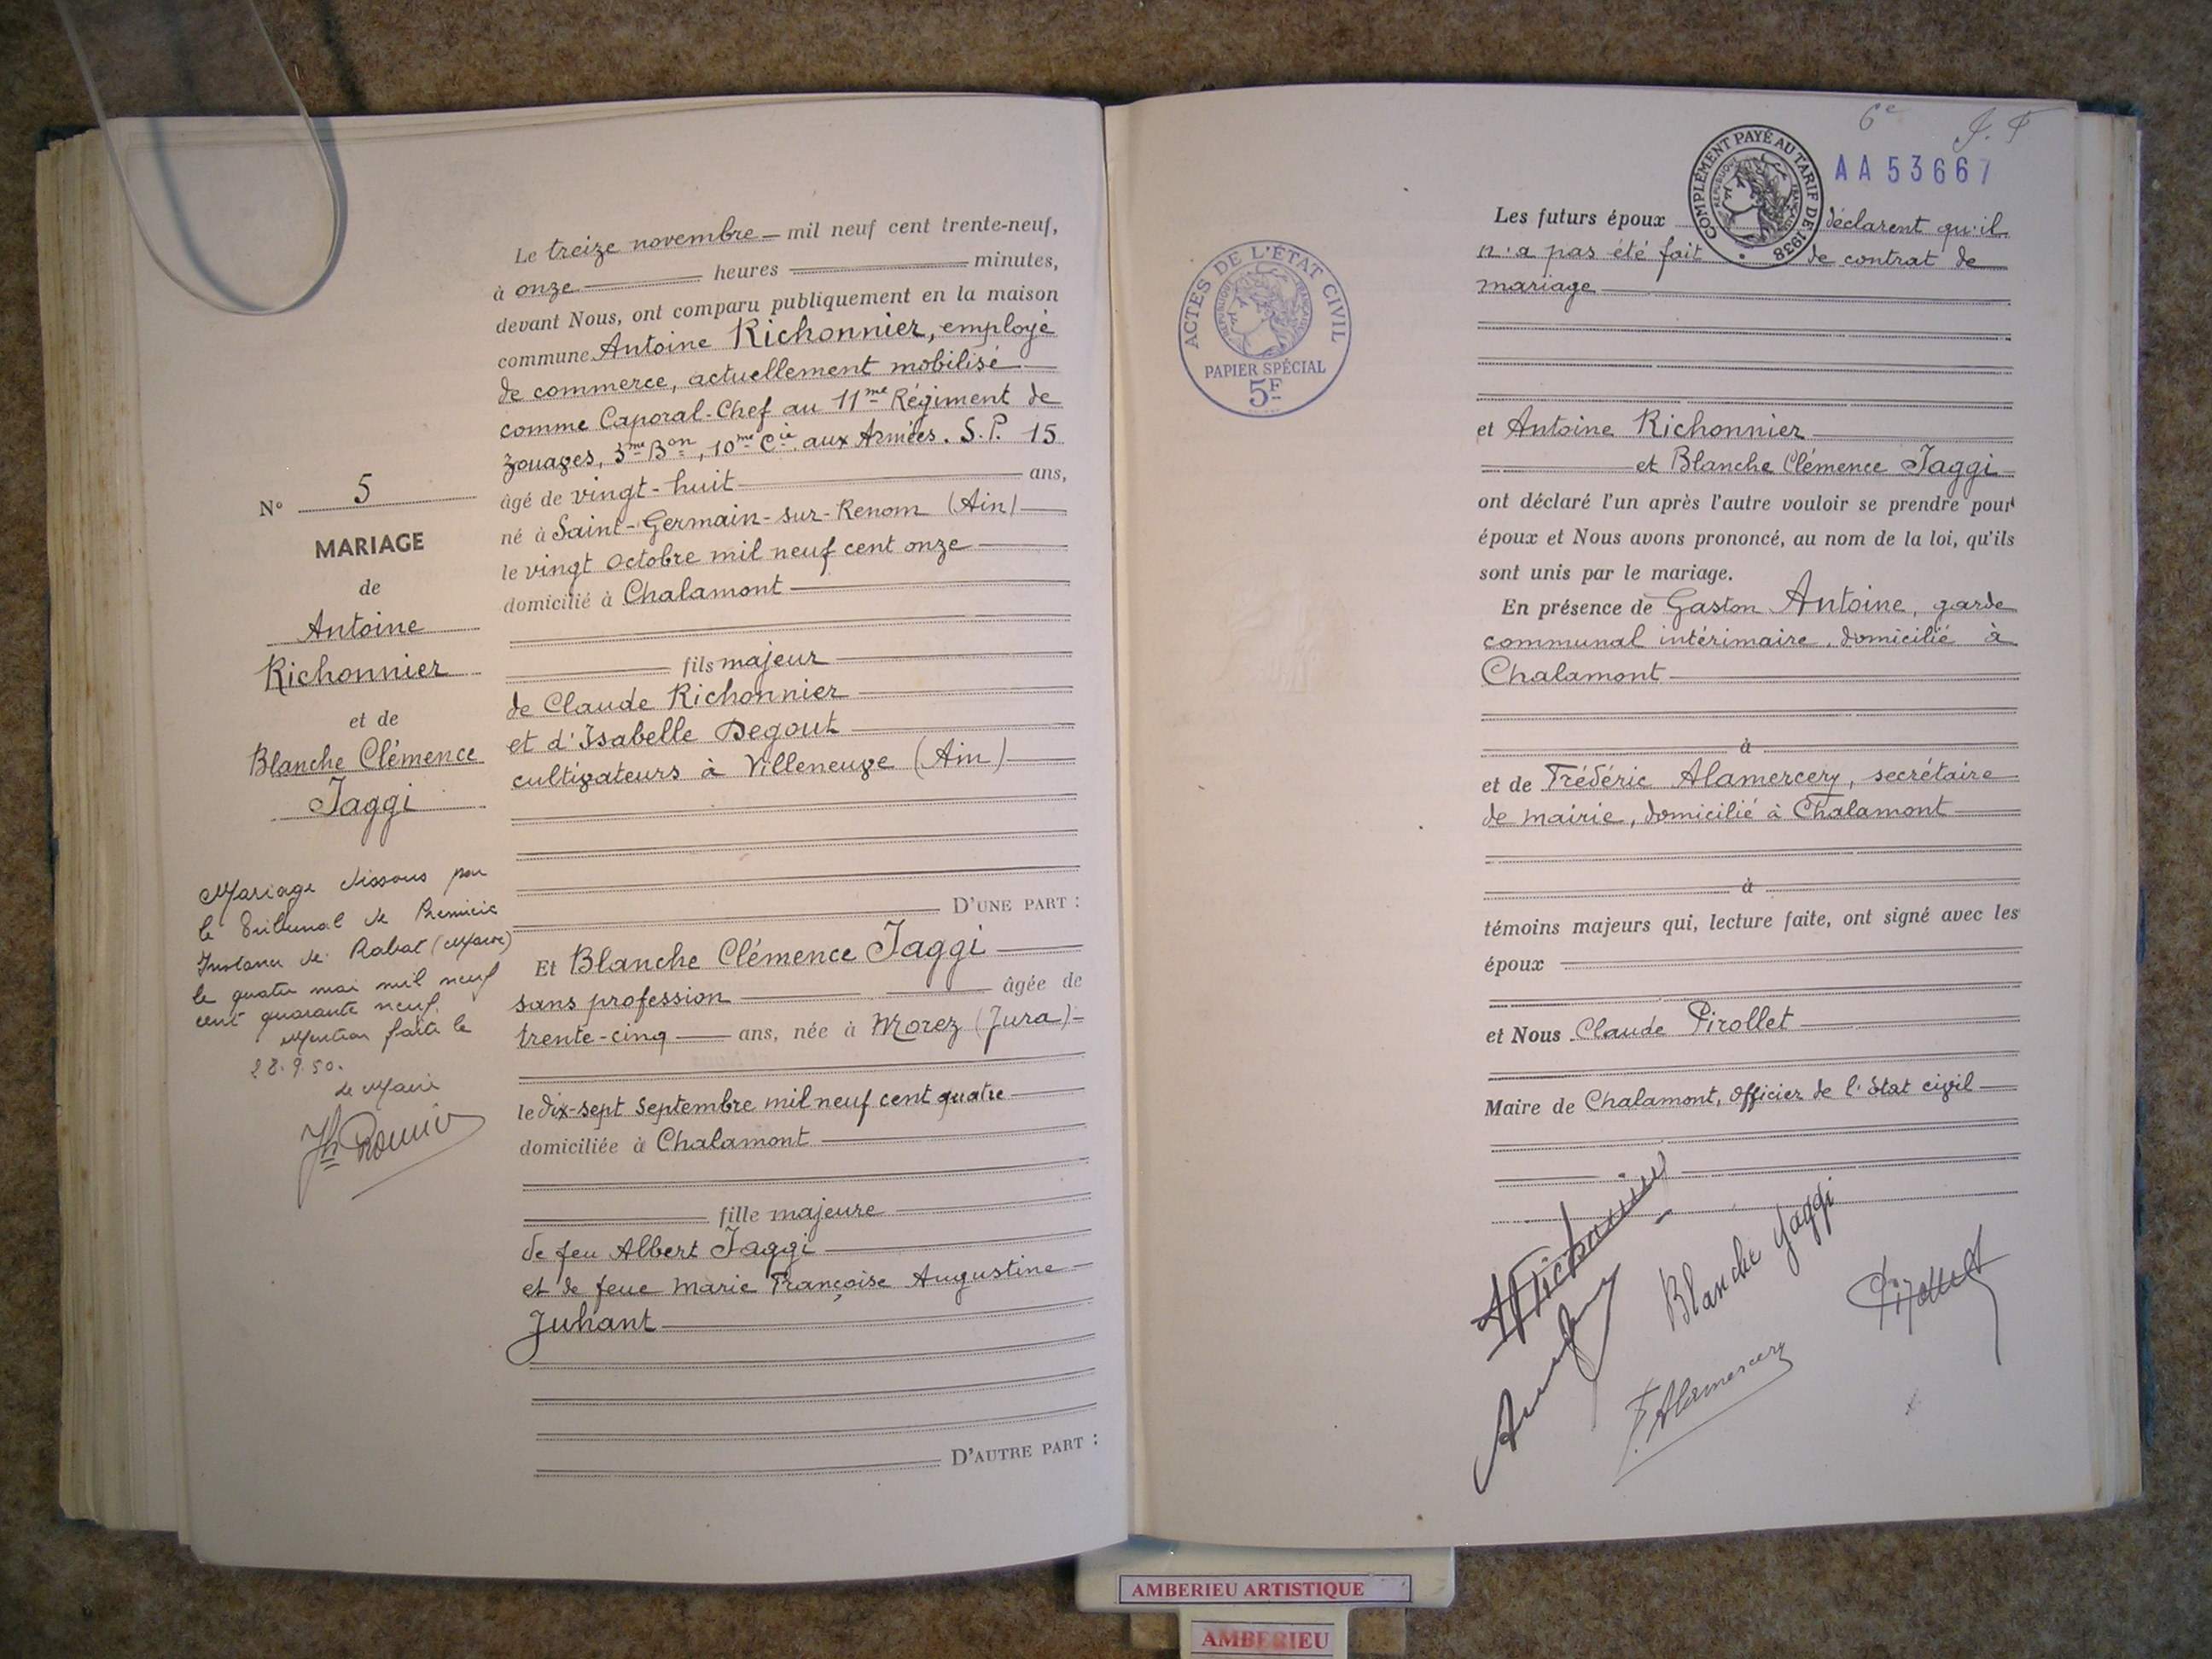 N° 5
MARIAGE
de
Antoine
Richonnier
et de
Blanche Clémence
Jaggi
Mariage dissous par
le Tribunal de Première
Instance de Rabat (Maroc)
le quatre mai mil neuf
cent quarante neuf.
Mention faite le
28.9.50.
Le Maire
Le treize novembre mil neuf cent trente-neuf,
à onze heures minutes,
devant Nous, ont comparu publiquement en la maison
commune Antoine Richonnier, employé
de commerce, actuellement mobilisé
comme Caporal-Chef au 11me Régiment de
Zouaves, 3me Bon, 10me Cie aux Armées. S.P. 15
âgé de vingt-huit ans,
né à Saint-Germain-sur-Renom (Ain)
le vingt Octobre mil neuf cent onze
domicilié à Chalamont
fils majeur
de Claude Richonnier
et d'Isabelle Degout
cultivateurs à Villeneuve (Ain)
D'UNE PART :
Et Blanche Clémence Jaggi
sans profession âgée de
trente-cinq ans, née à Morez (Jura)
le dix-sept Septembre mil neuf cent quatre
domiciliée à Chalamont
fille majeure
de feu Albert Jaggi
et de feue Marie Françoise Augustine
Juhant
D'AUTRE PART :
ACTES DE L'ÉTAT CIVIL
RÉPUBLIQUE FRANÇAISE
PAPIER SPÉCIAL
5F
6e
J. F
COMPLÉMENT PAYÉ AU TARIF DE 1938
RÉPUBLIQUE FRANÇAISE
AA53667
Les futurs époux déclarent qu'il
n'a pas été fait de contrat de
mariage
et Antoine Richonnier
et Blanche Clémence Jaggi
ont déclaré l'un après l'autre vouloir se prendre pour
époux et Nous avons prononcé, au nom de la loi, qu'ils
sont unis par le mariage.
En présence de Gaston Antoine, garde
communal intérimaire, domicilié à
Chalamont
à
et de Frédéric Alamercery, secrétaire
de mairie, domicilié à Chalamont
à
témoins majeurs qui, lecture faite, ont signé avec les
époux
et Nous Claude Pirollet
Maire de Chalamont, Officier de l'Etat civil
ARichonnier
Blanche Jaggi
Pirollet
F. Alamercery
AMBERIEU ARTISTIQUE
AMBERIEU